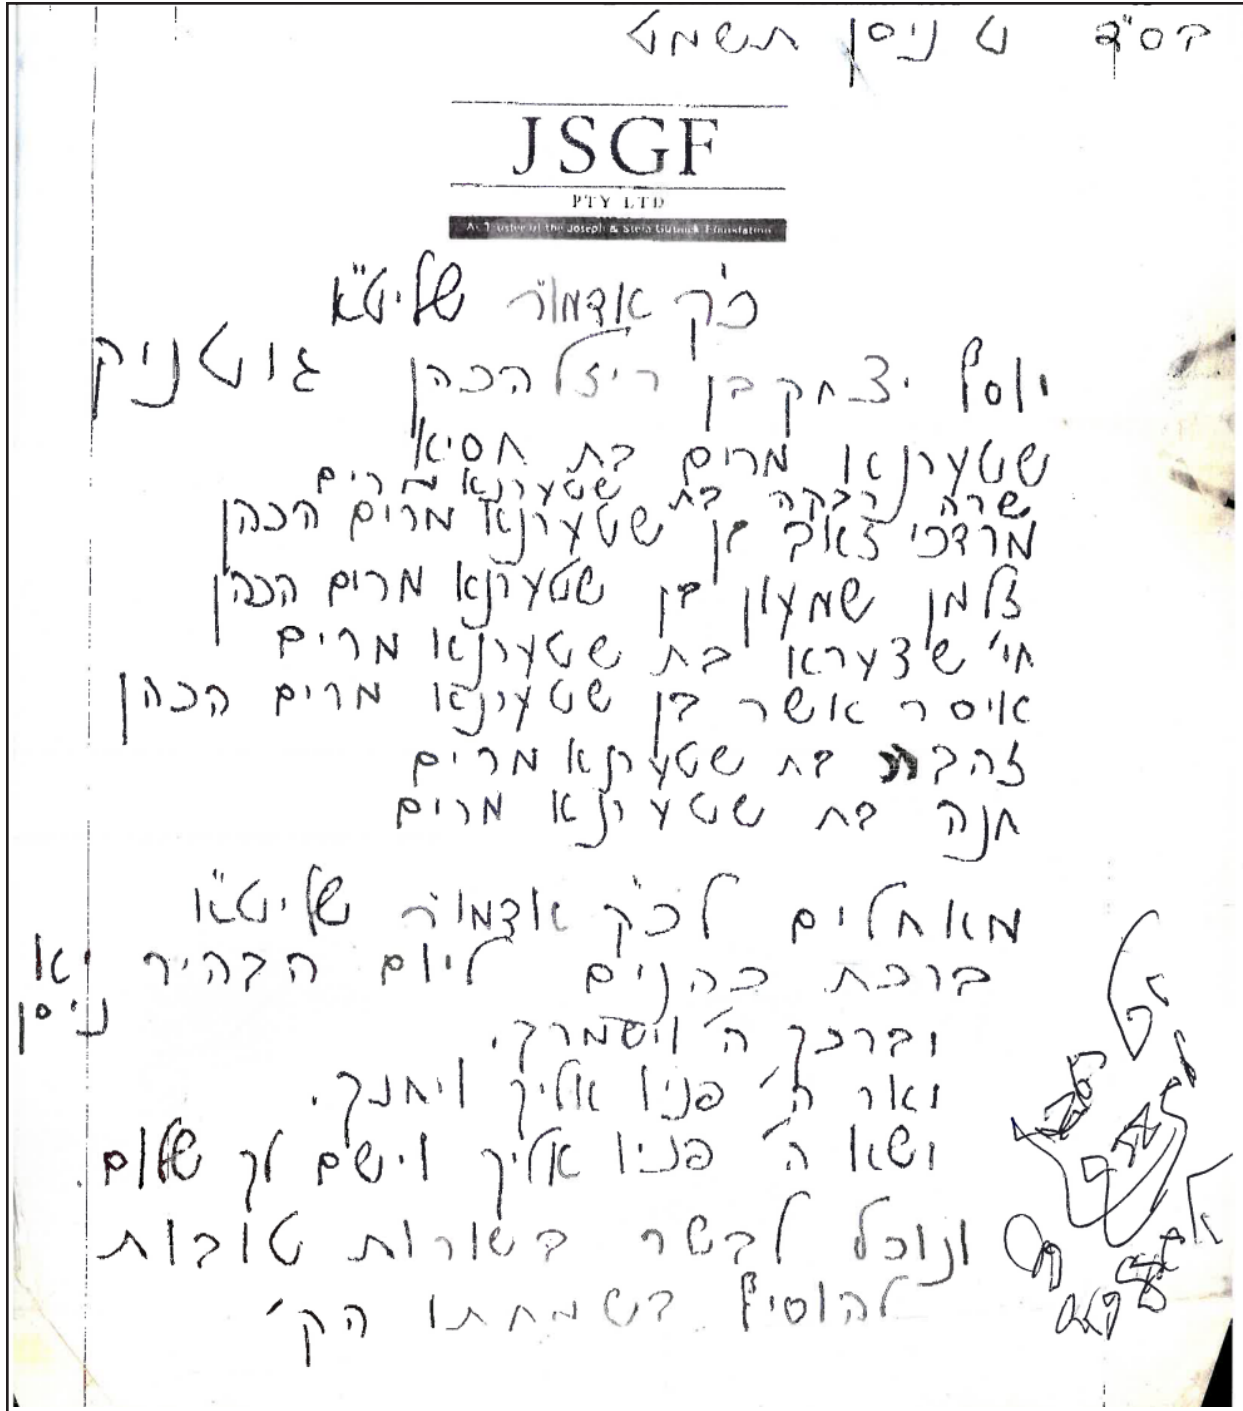 בס"ד ט ניסן תשמט
JSGF
PTY LTD
As Trustee of the Joseph & Stera Gutnick Foundation
כ"ק אדמו"ר שליט"א
יוסף יצחק בן רייזל הכהן גוטניק
שטערנא מרים בת חסיא
שרה רבקה בת שטערנא מרים
מרדכי זאב בן שטערנא מרים הכהן
זלמן שמעון בן שטערנא מרים הכהן
חי' בת שטערנא מרים
איסר אשר בן שטערנא מרים הכהן
זהבה בת שטערנא מרים
חנה בת שטערנא מרים
מאחלים לכ"ק אדמו"ר שליט"א
ברכת כהנים ליום הבהיר יא
ניסן
יברכך ה' וישמרך.
יאר ה' פניו אליך ויחנך.
ישא ה' פניו אליך וישם לך שלום.
ונוכל לבשר בשורות טובות
להוסיף בשמחתו הק'